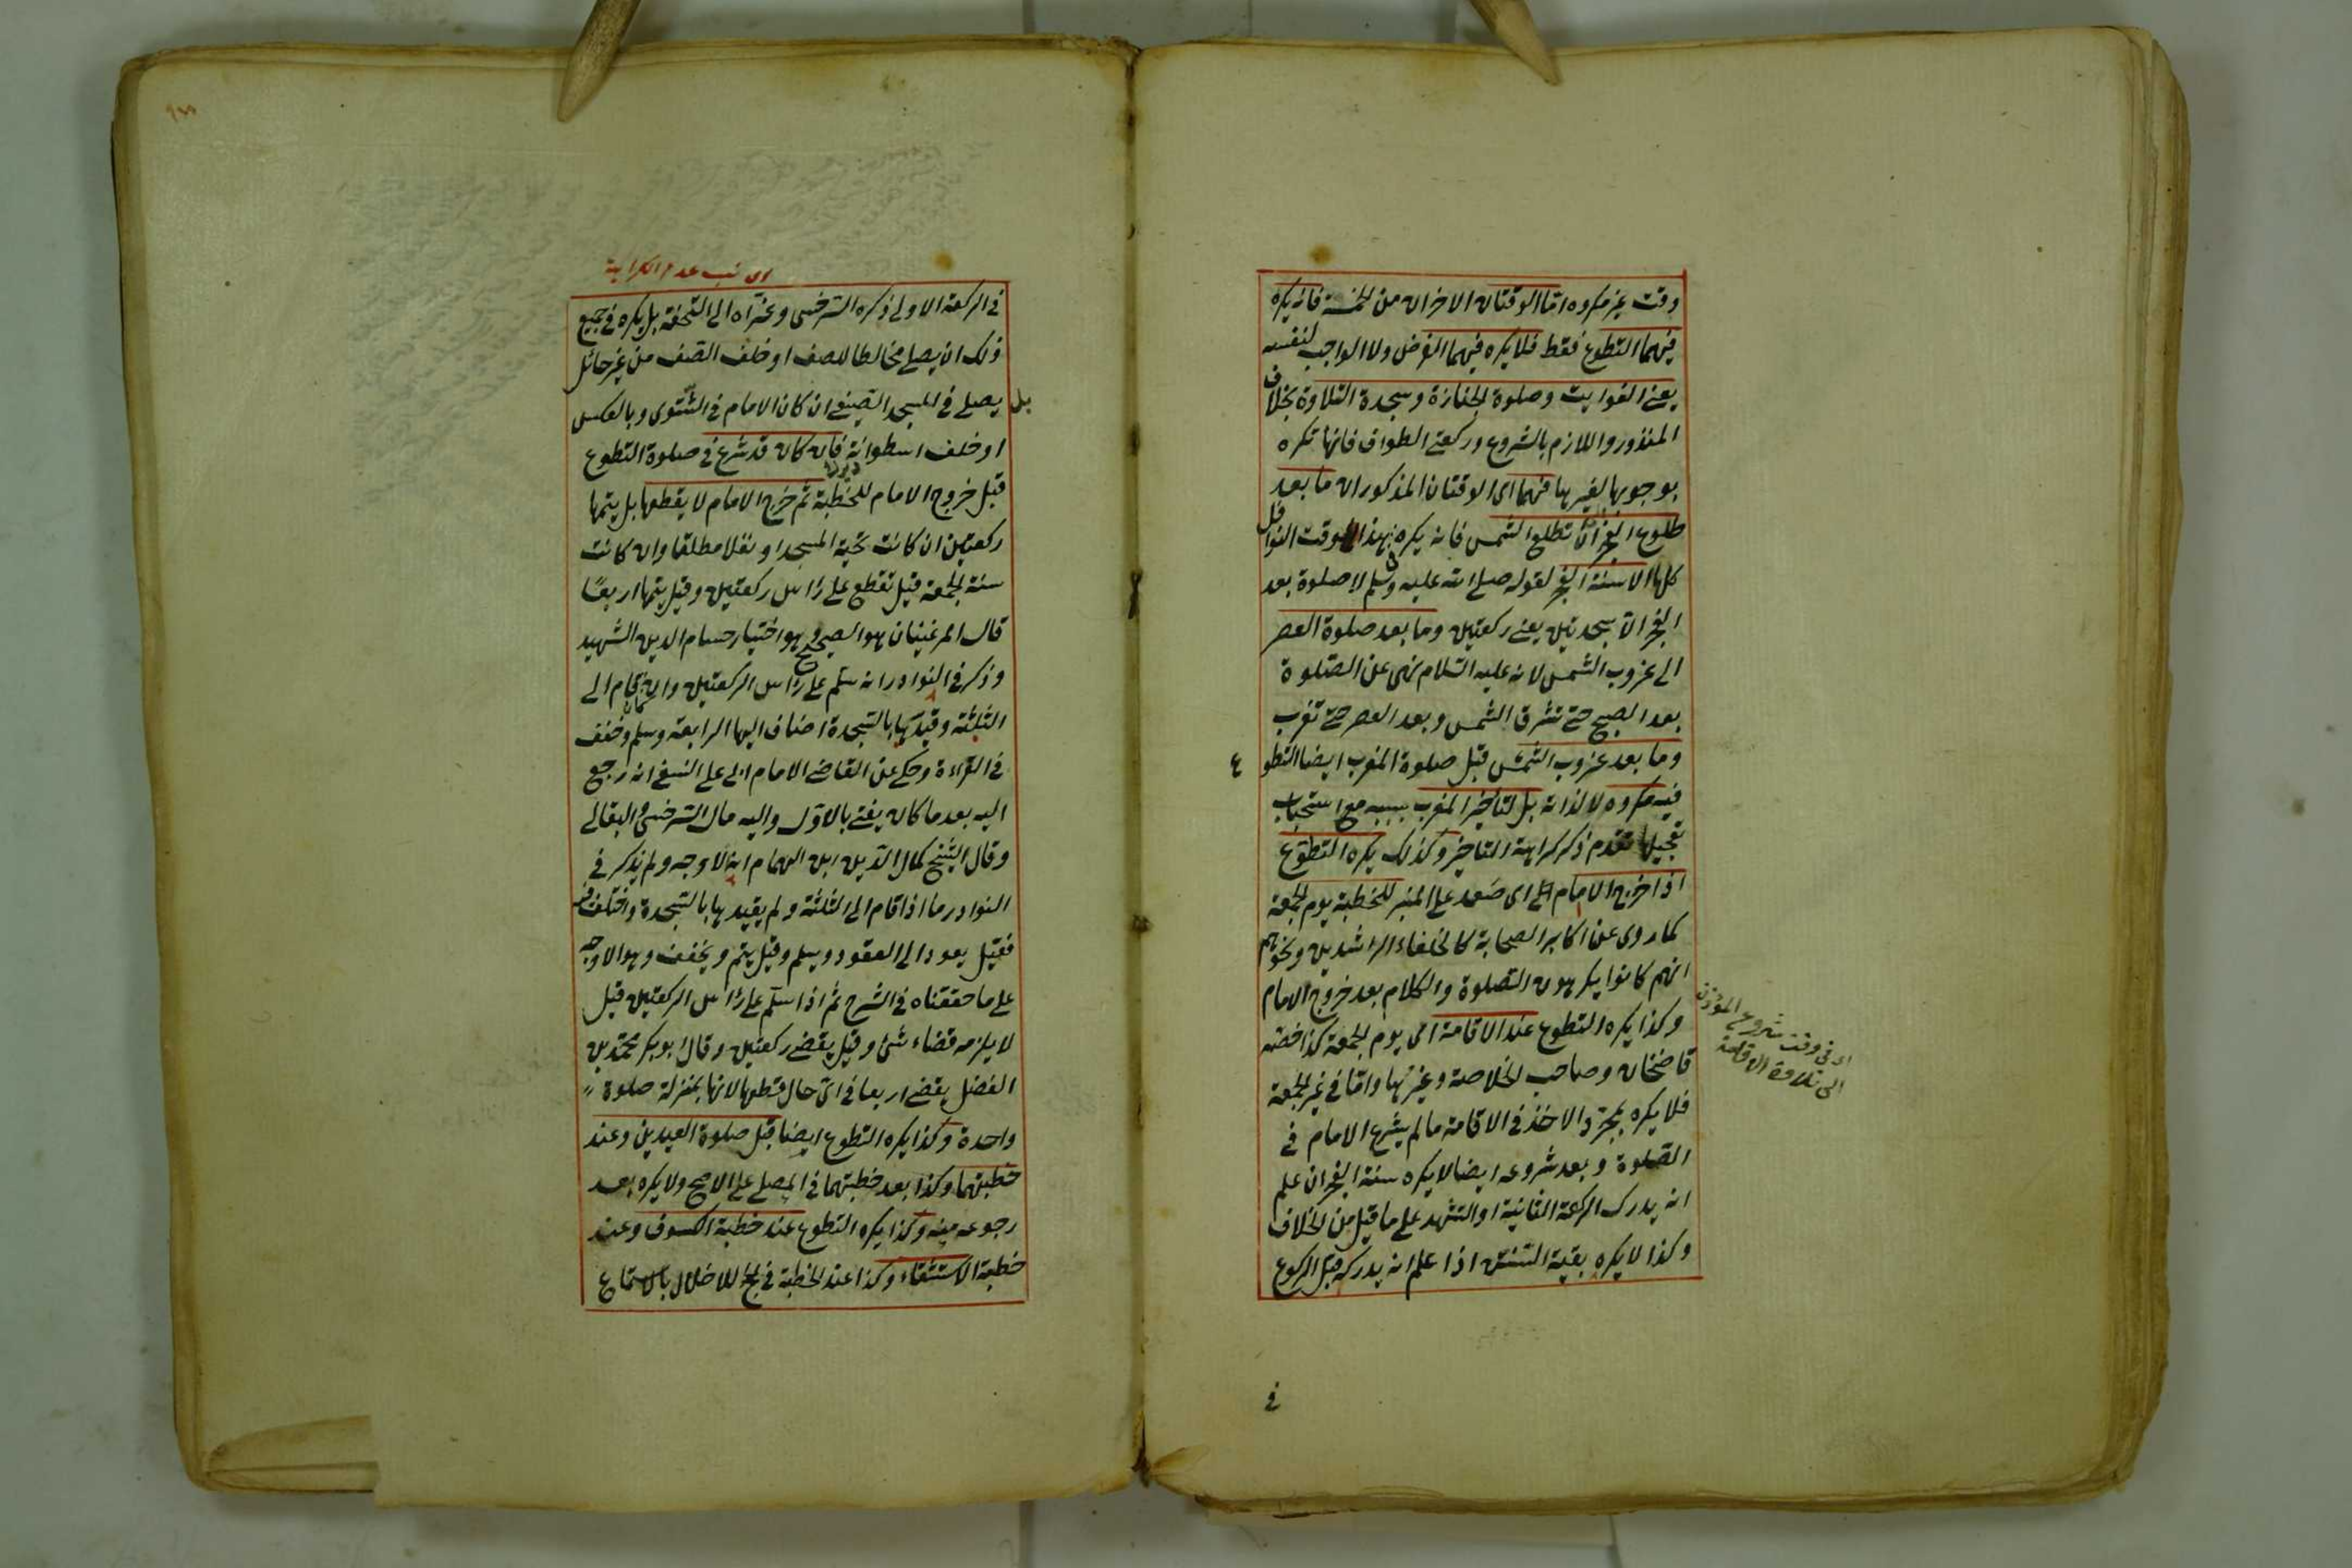 وقت غير مكروه اما الوقتان الاخران من الخمسة فانه يكره
فيهما التطوع فقط فلا يكره فيهما الفرض ولا الواجب لنفسه
يعنى الفوايت وصلوة الجنازة وسجدة التلاوة بخلاف
المنذور واللازم بالشروع وركعتى الطواف فانها تكره
بوجوبها لغيرها فهما اى الوقتان المذكوران ما بعد
طلوع الفجر الى ان تطلع الشمس فانه يكره فى هذا الوقت النوافل
كلها الا سنة الفجر لقوله صلى الله عليه وسلم لا صلوة بعد
الفجر الا سجدتين يعنى ركعتين وما بعد صلوة العصر
الى غروب الشمس لانه عليه السلام نهى عن الصلوة
بعد الصبح حتى تشرق الشمس وبعد العصر حتى تغرب
وما بعد غروب الشمس قبل صلوة المغرب ايضا التطوع
فيه مكروه لا لذاته بل لتاخير المغرب بسببه مع استحباب
تعجيلها تقدم ذكر كراهة التاخير وكذلك يكره التطوع
اذا خرج الامام اى صعد على المنبر للخطبة يوم الجمعة
كما روى عن اكابر الصحابة كالخلفاء الراشدين ونحوهم
انهم كانوا يكرهون الصلوة والكلام بعد خروج الامام
وكذا يكره التطوع عند الاقامة اى يوم الجمعة كذا خصه
قاضخان وصاحب الخلاصة وغيرهما واما فى غير الجمعة
فلا يكره بمجرد الاخذ فى الاقامة مالم يشرع الامام فى
الصلوة وبعد شروعه ايضا لا يكره سنة الفجر ان علم
انه يدرك الركعة الثانية او التشهد على ما قيل من الخلاف
وكذا لا يكره بقية السنن اذا علم انه يدركه قبل الركوع
اى فى وقت شروع المؤذن
الى تلاوة الاقامة
فى
عدم الكراهة
فى الركعة الاولى ذكره السرخسى وعزاه الى التحفة بل يكره فى جميع
ذلك ان يصلى مخالطا للصف او خلف الصف من غير حائل
بل يصلى فى المسجد الصيفى ان كان الامام فى الشتوى وبالعكس
او خلف اسطوانة فان كان قد شرع فى صلوة التطوع
قبل خروج الامام للخطبة ثم خرج الامام لا يقطعها بل يتمها
ركعتين ان كانت تحية المسجد او نفلا مطلقا وان كانت
سنة الجمعة قيل تقطع على رأس ركعتين وقيل يتمها اربعًا
قال المرغينانى هو الصحيح وهو اختيار حسام الدين الشهيد
وذكر فى النوادر انه سلم على رأس الركعتين وان كان قام الى
الثلثة وقيدها بالسجدة اضاف اليها الرابعة وسلم وخفف
فى القراءة وحكى عن القاضى الامام ابى على النسفى انه رجع
اليه بعد ما كان يفتى بالاول واليه مال السرخسى والبقالى
وقال الشيخ كمال الدين ابن الهمام انه الاوجه ولم يذكر فى
النوادر ما اذا قام الى الثلثة ولم يقيدها بالسجدة واختلف فيه
فقيل يعود الى القعود ويسلم وقيل يتم ويخفف وهو الاوجه
على ما حققناه فى الشرح ثم اذا سلم على رأس الركعتين قيل
لا يلزمه قضاء شئ وقيل يقضى ركعتين وقال ابو بكر محمد بن
الفضل يقضى اربعا فى اى حال قطعها لانها بمنزلة صلوة
واحدة وكذا يكره التطوع ايضا قبل صلوة العيدين وعند
خطبتهما وكذا بعد خطبتهما فى المصلى على الاصح ولا يكره بعد
رجوعه منه وكذا يكره التطوع عند خطبة الكسوف وعند
خطبة الاستسقاء وكذا عند الخطبة فى الحج للاخلال بالاستماع